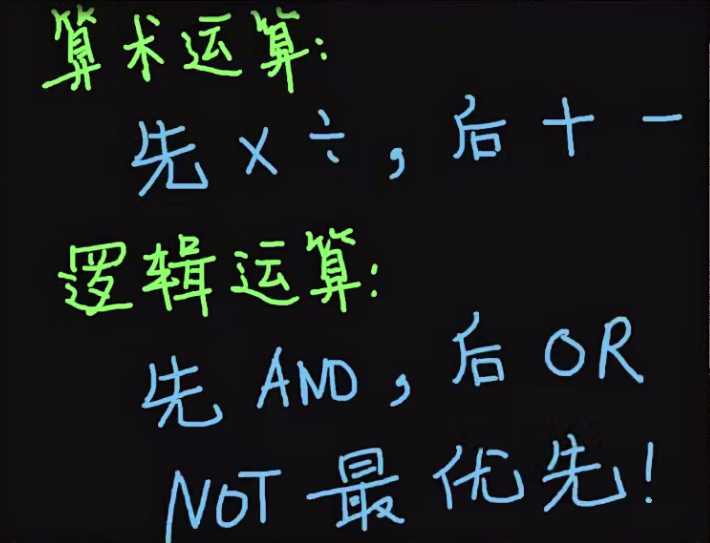 算术运算:
先 × ÷ , 后 + -
逻辑运算:
先 AND , 后 OR
NOT 最优先!